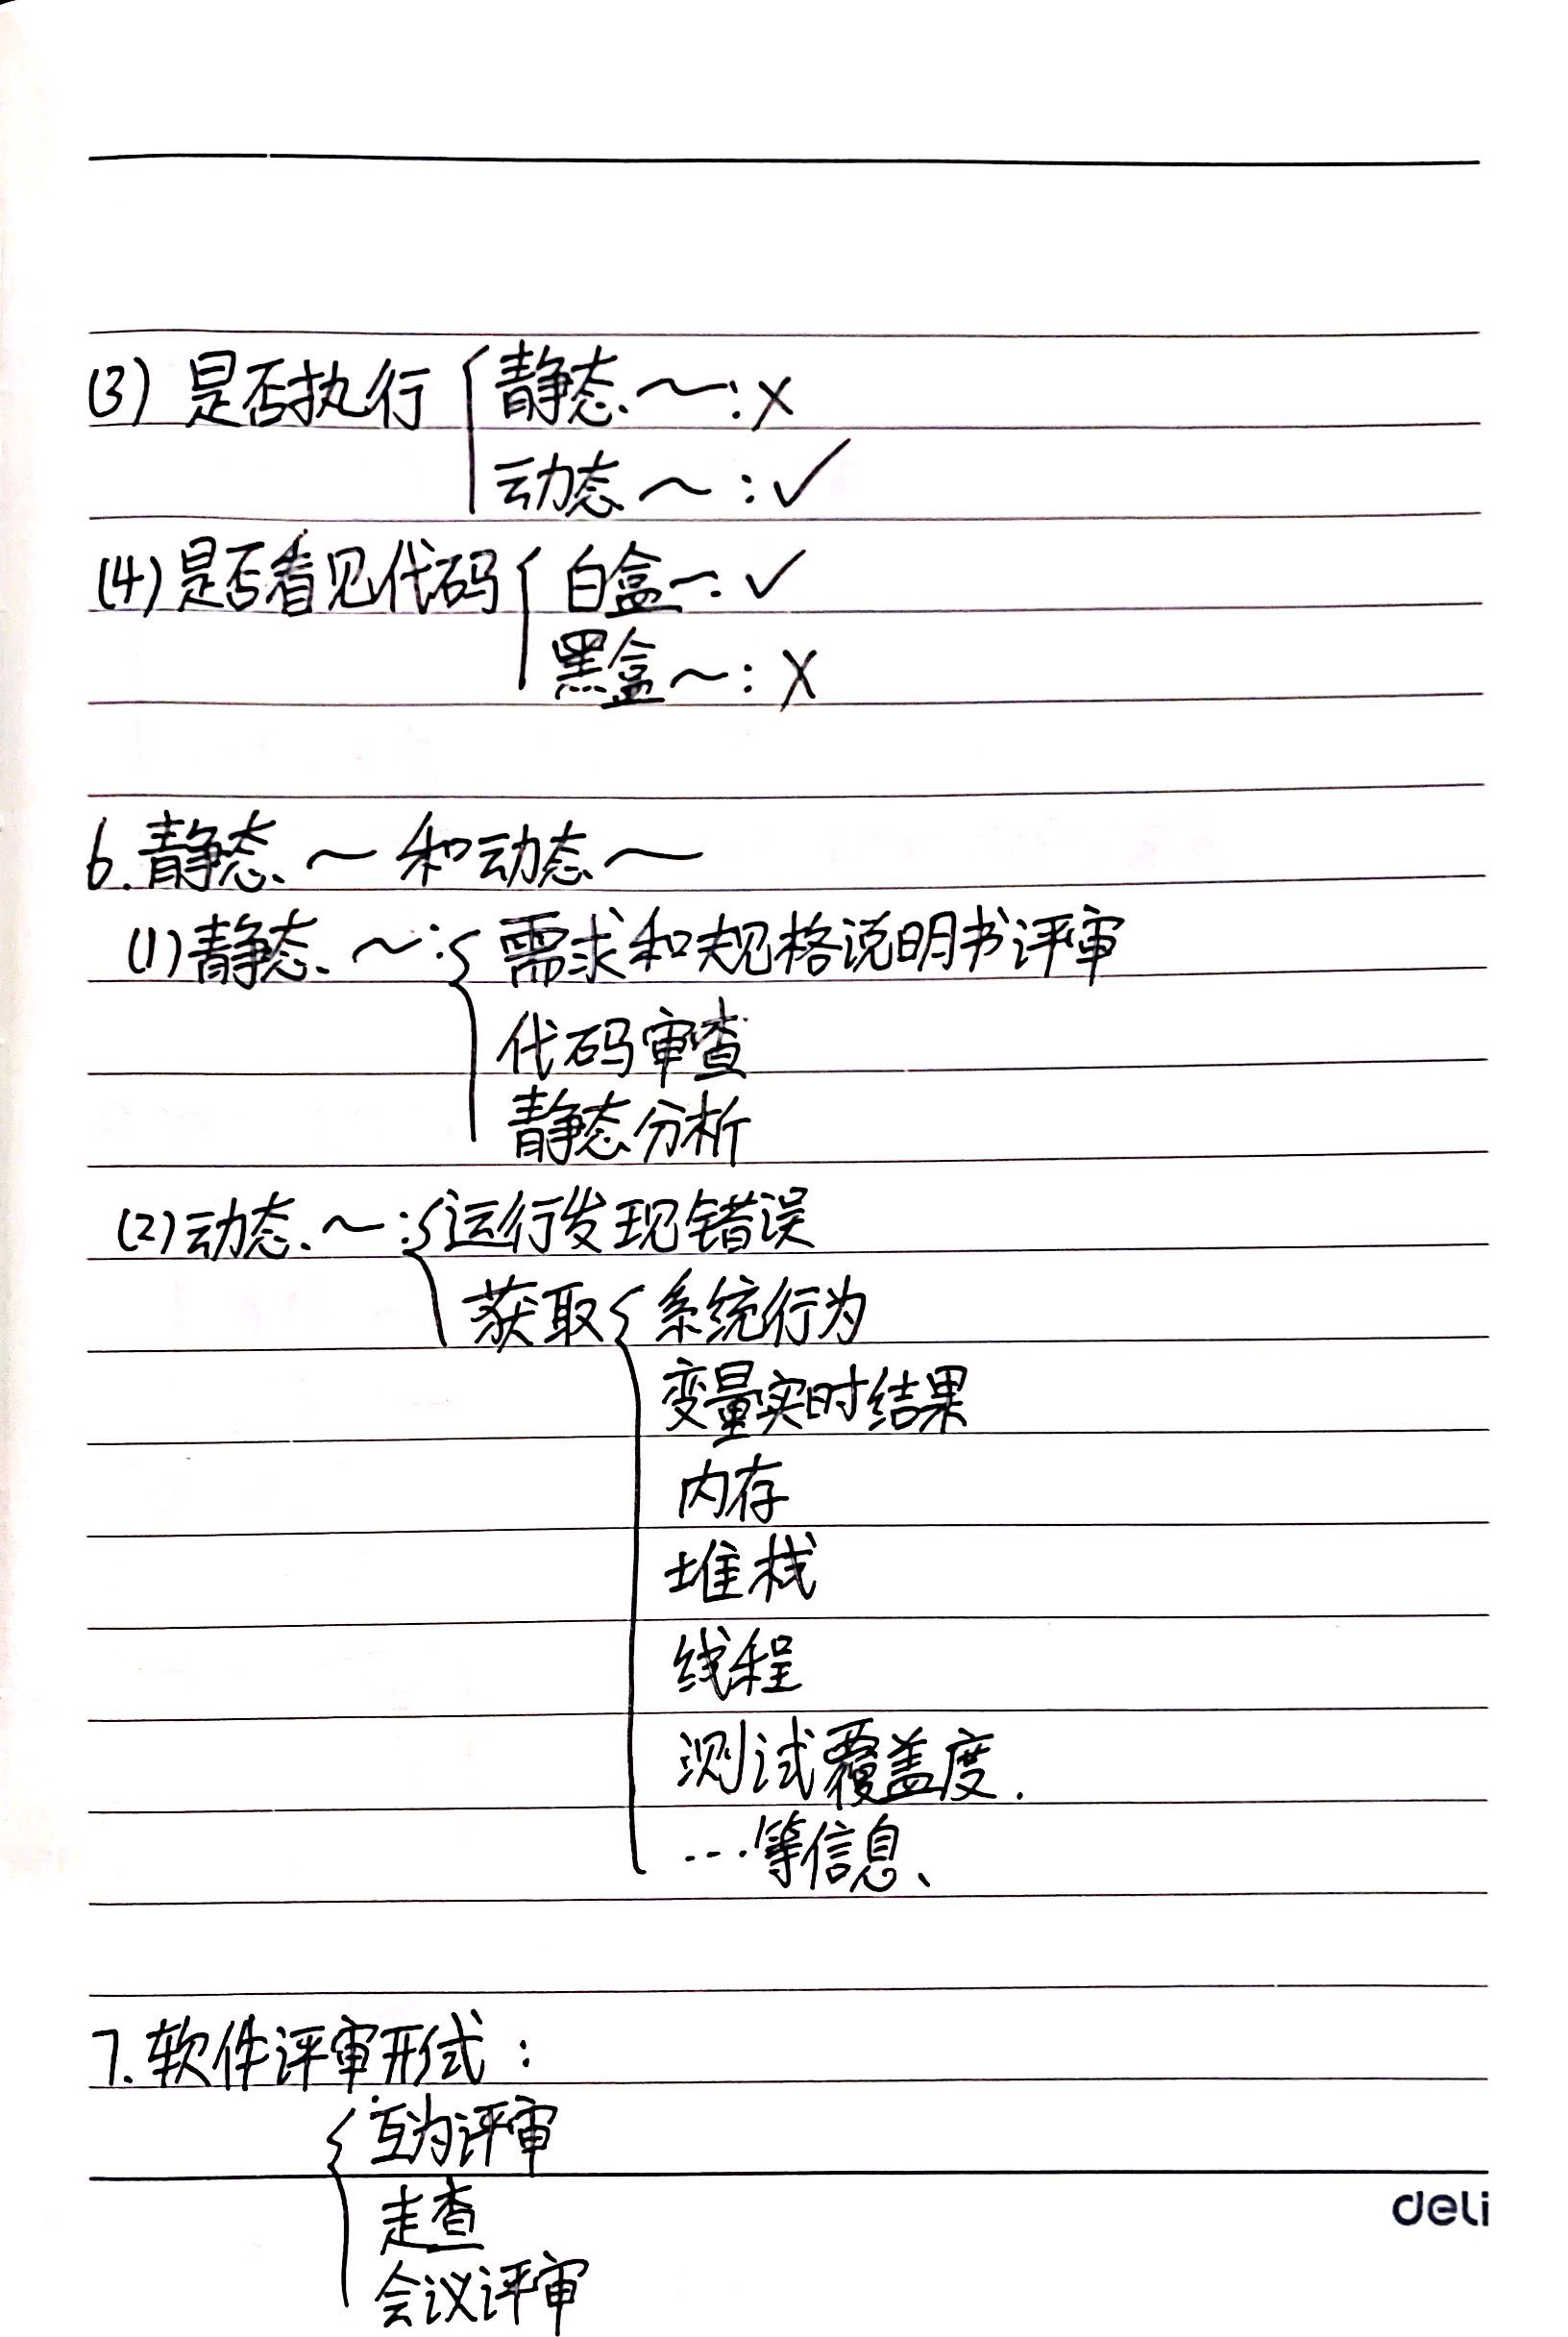 (3) 是否执行 { 静态～: ×
动态～: ✓
(4) 是否看见代码 { 白盒～: ✓
黑盒～: ×
6. 静态～和动态～
(1) 静态～: { 需求和规格说明书评审
代码审查
静态分析
(2) 动态～: { 运行发现错误
获取 { 系统行为
变量实时结果
内存
堆栈
线程
测试覆盖度.
...等信息、
7. 软件评审形式:
{ 互为评审
走查
会议评审
deli